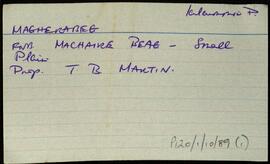 Kilcummin P.
MAGHERABEG
RNB MACHAIRE BEAG - Small
Plain
Prop. T B MARTIN.
P120/1/10/89 (1)